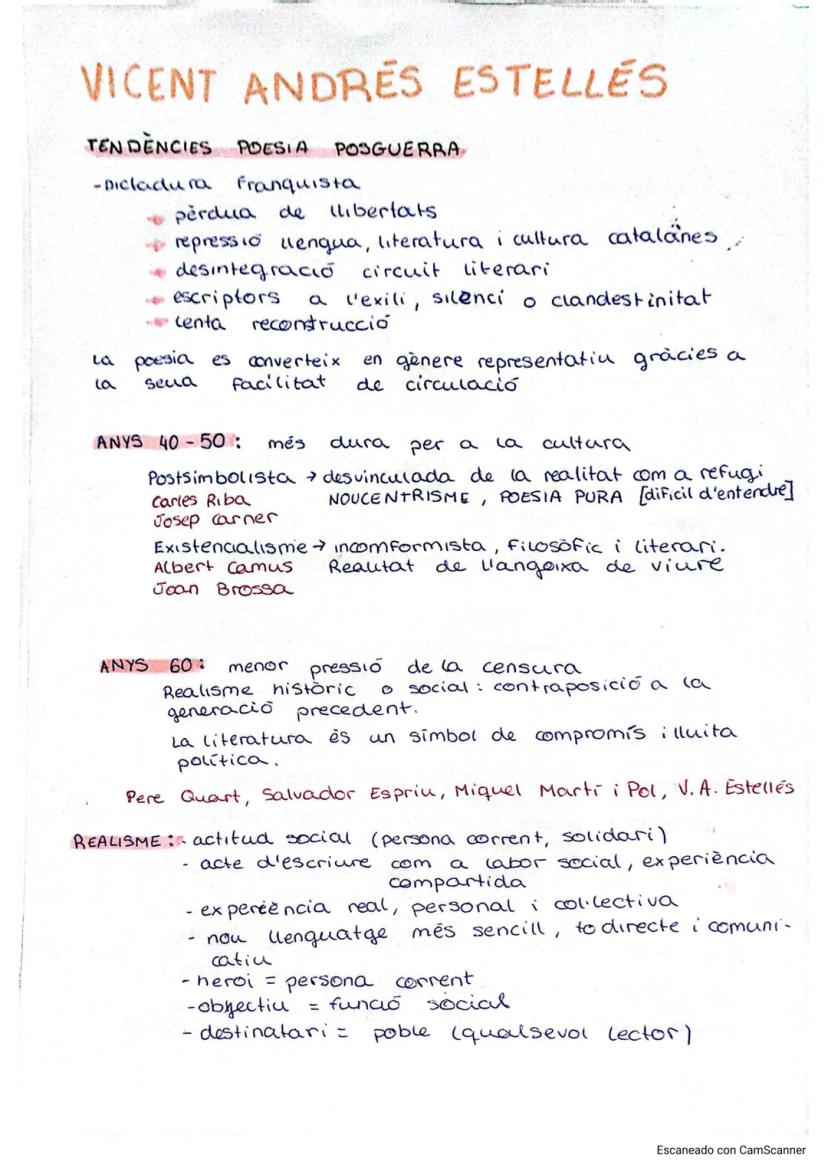 VICENT ANDRÉS ESTELLÉS
TENDÈNCIES POESIA POSGUERRA
- Dictadura Franquista
pèrdua de llibertats
repressió llengua, literatura i cultura catalanes
desintegració circuit literari
escriptors a l'exili, silenci o clandestinitat
lenta reconstrucció
La poesia es converteix en gènere representatiu gràcies a
la seua facilitat de circulació
ANYS 40-50: més dura per a la cultura
Postsimbolista → desvinculada de la realitat com a refugi
Carles Riba NOUCENTRISME, POESIA PURA [dificil d'entendre]
Josep Carner
Existencialisme → incomformista, filosòfic i literari.
Albert Camus Realitat de l'angoixa de viure
Joan Brossa
ANYS 60: menor pressió de la censura
Realisme històric o social: contraposició a la
generació precedent.
La literatura és un símbol de compromís i lluita
política.
Pere Quart, Salvador Espriu, Miquel Martí i Pol, V. A. Estellés
REALISME: - actitud social (persona corrent, solidari)
- acte d'escriure com a labor social, experiència
compartida
- experiència real, personal i col·lectiva
- nou llenguatge més sencill, to directe i comuni-
catiu
- heroi = persona corrent
- objectiu = funció social
- destinatari = poble (qualsevol lector)
Escaneado con CamScanner